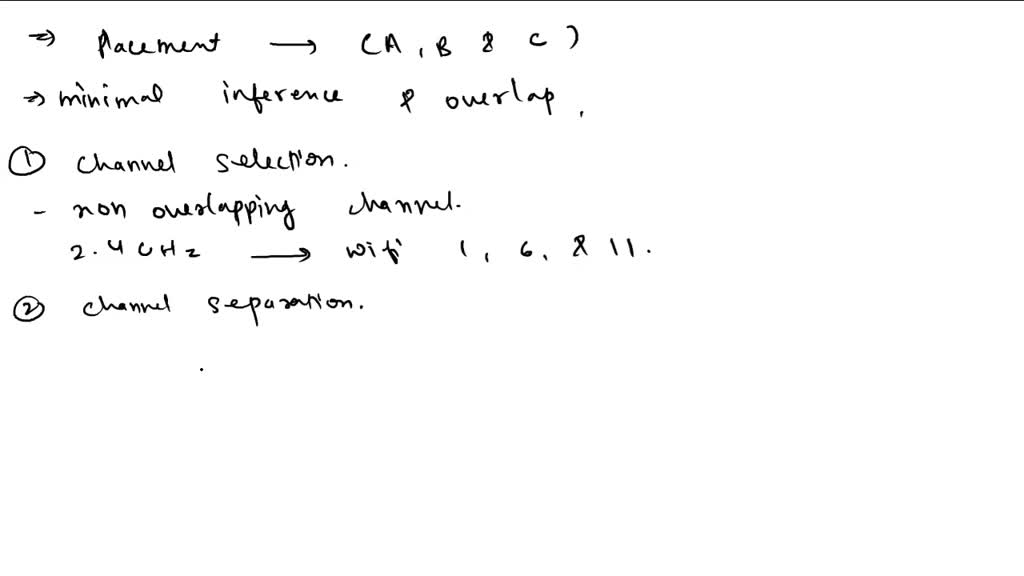 ⇒ Placement → (A, B & C)
⇒ minimal inference & overlap,
① channel selection.
- non overlapping channel.
2.4 GHz → wifi 1, 6, & 11.
② channel separation.